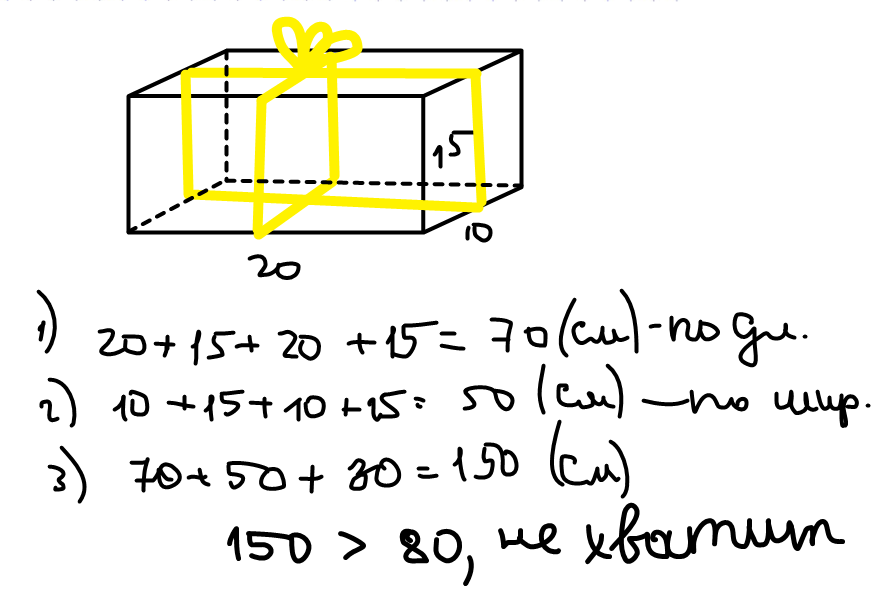 15
10
20
1) 20+15+20+15= 70 (см)-по дл.
2) 10+15+10+15= 50 (см) —по шир.
3) 70+50+30=150 (см)
150 > 80, не хватит